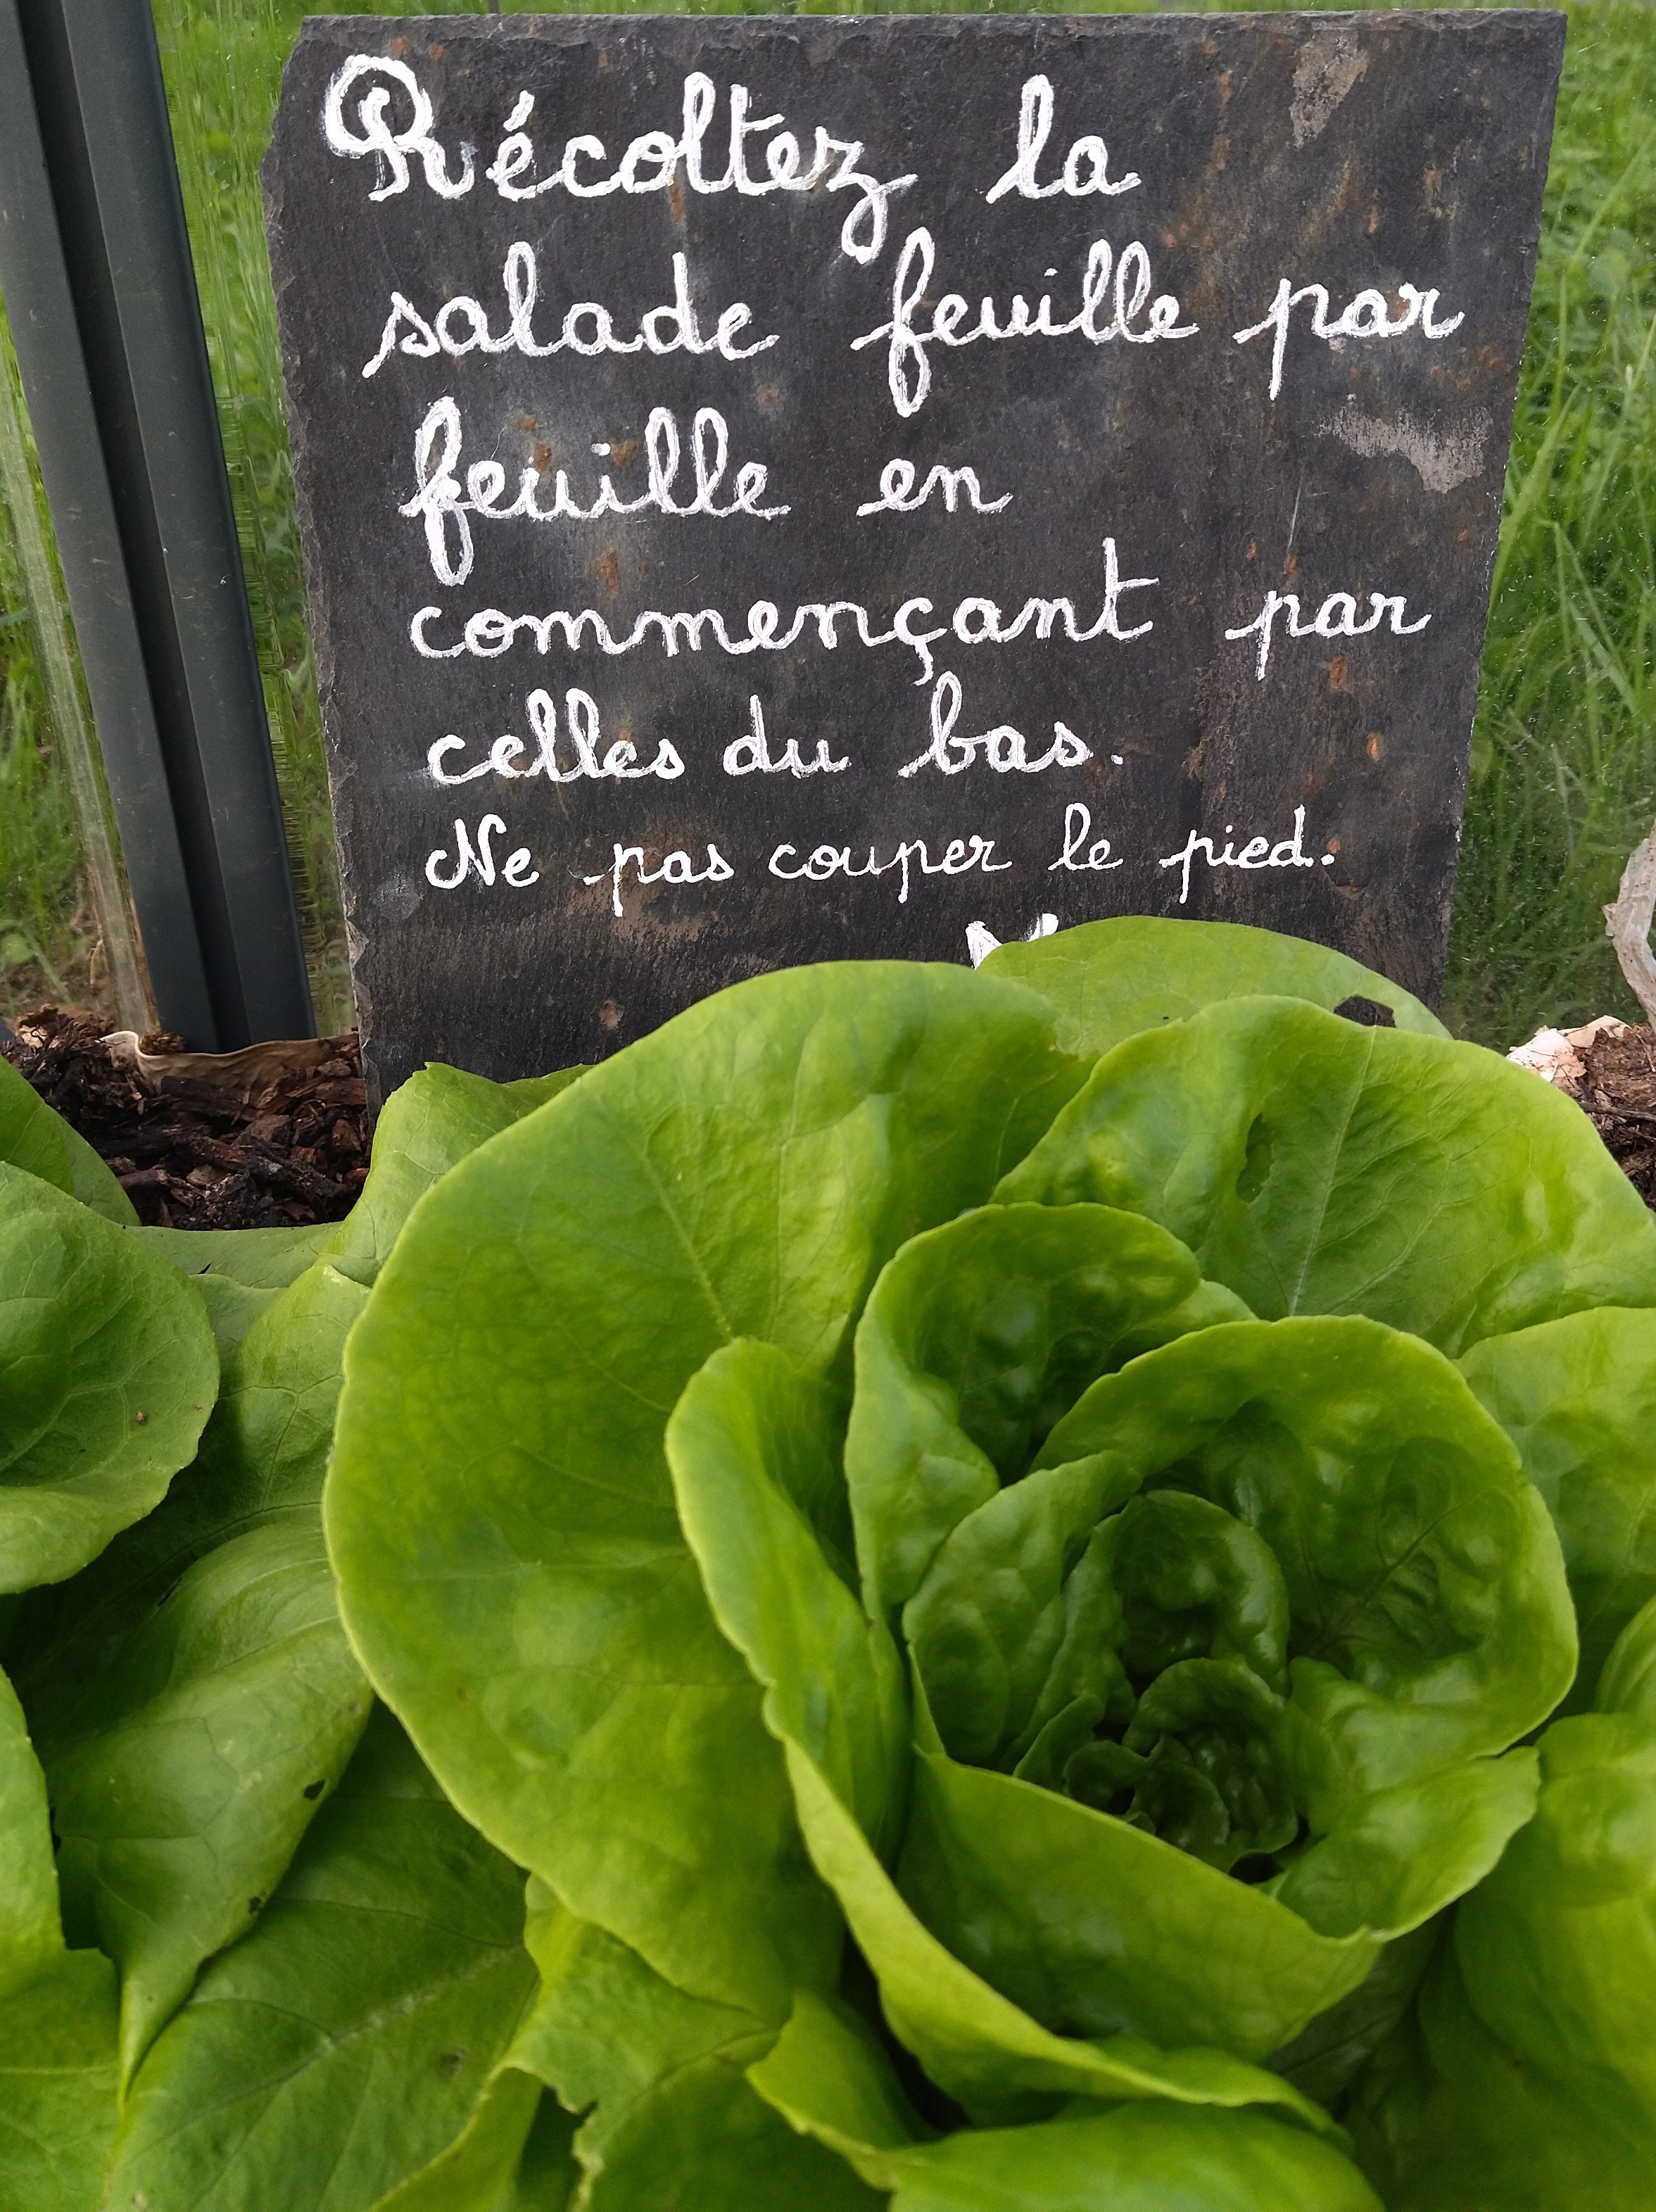 Récoltez la
salade feuille par
feuille en
commençant par
celles du bas.
Ne pas couper le pied.